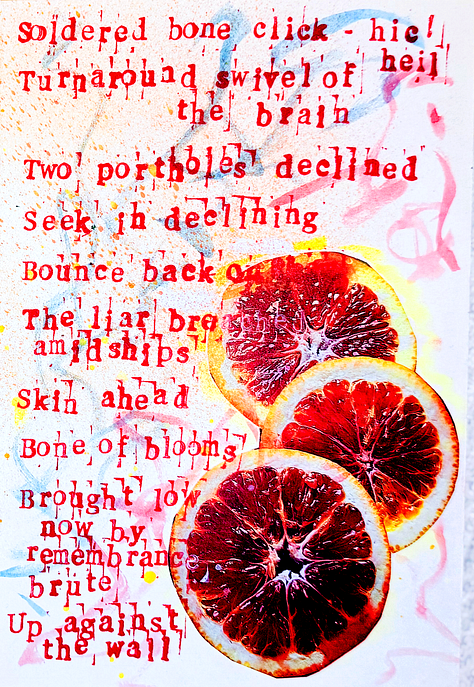 Soldered bone click - hic!
heil
Turnaround swivel of
the brain
Two portholes declined
Seek in declining
Bounce back on
The liar
amidships
Skin ahead
Bone of blooms
Brought low
now by
remembrance
brute
Up against
the wall